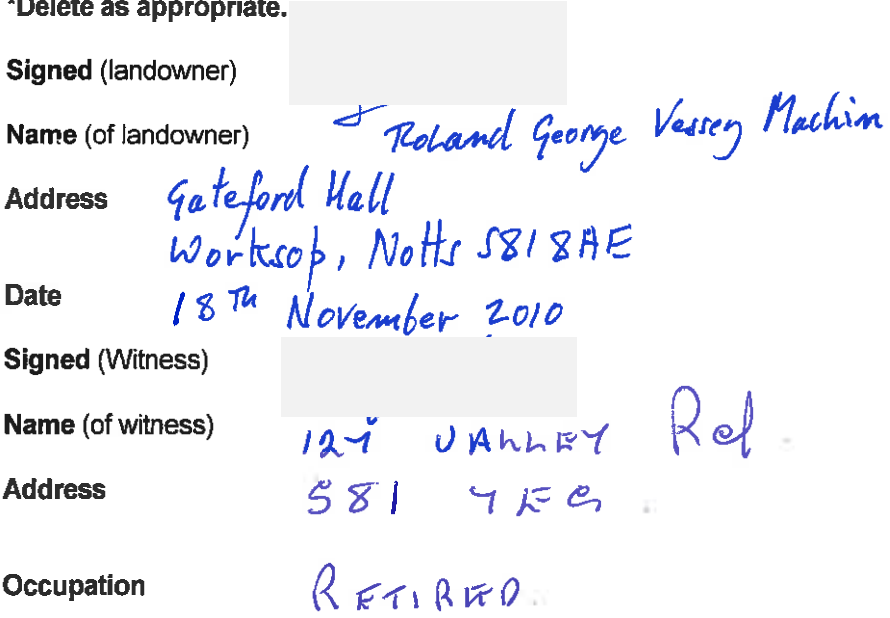 *Delete as appropriate.
Signed (landowner)
Name (of landowner) Roland George Vessey Machin
Address Gateford Hall
Worksop, Notts S81 8AE
Date 18Th November 2010
Signed (Witness)
Name (of witness)
VALLEY Rd
Address S81
Occupation RETIRED